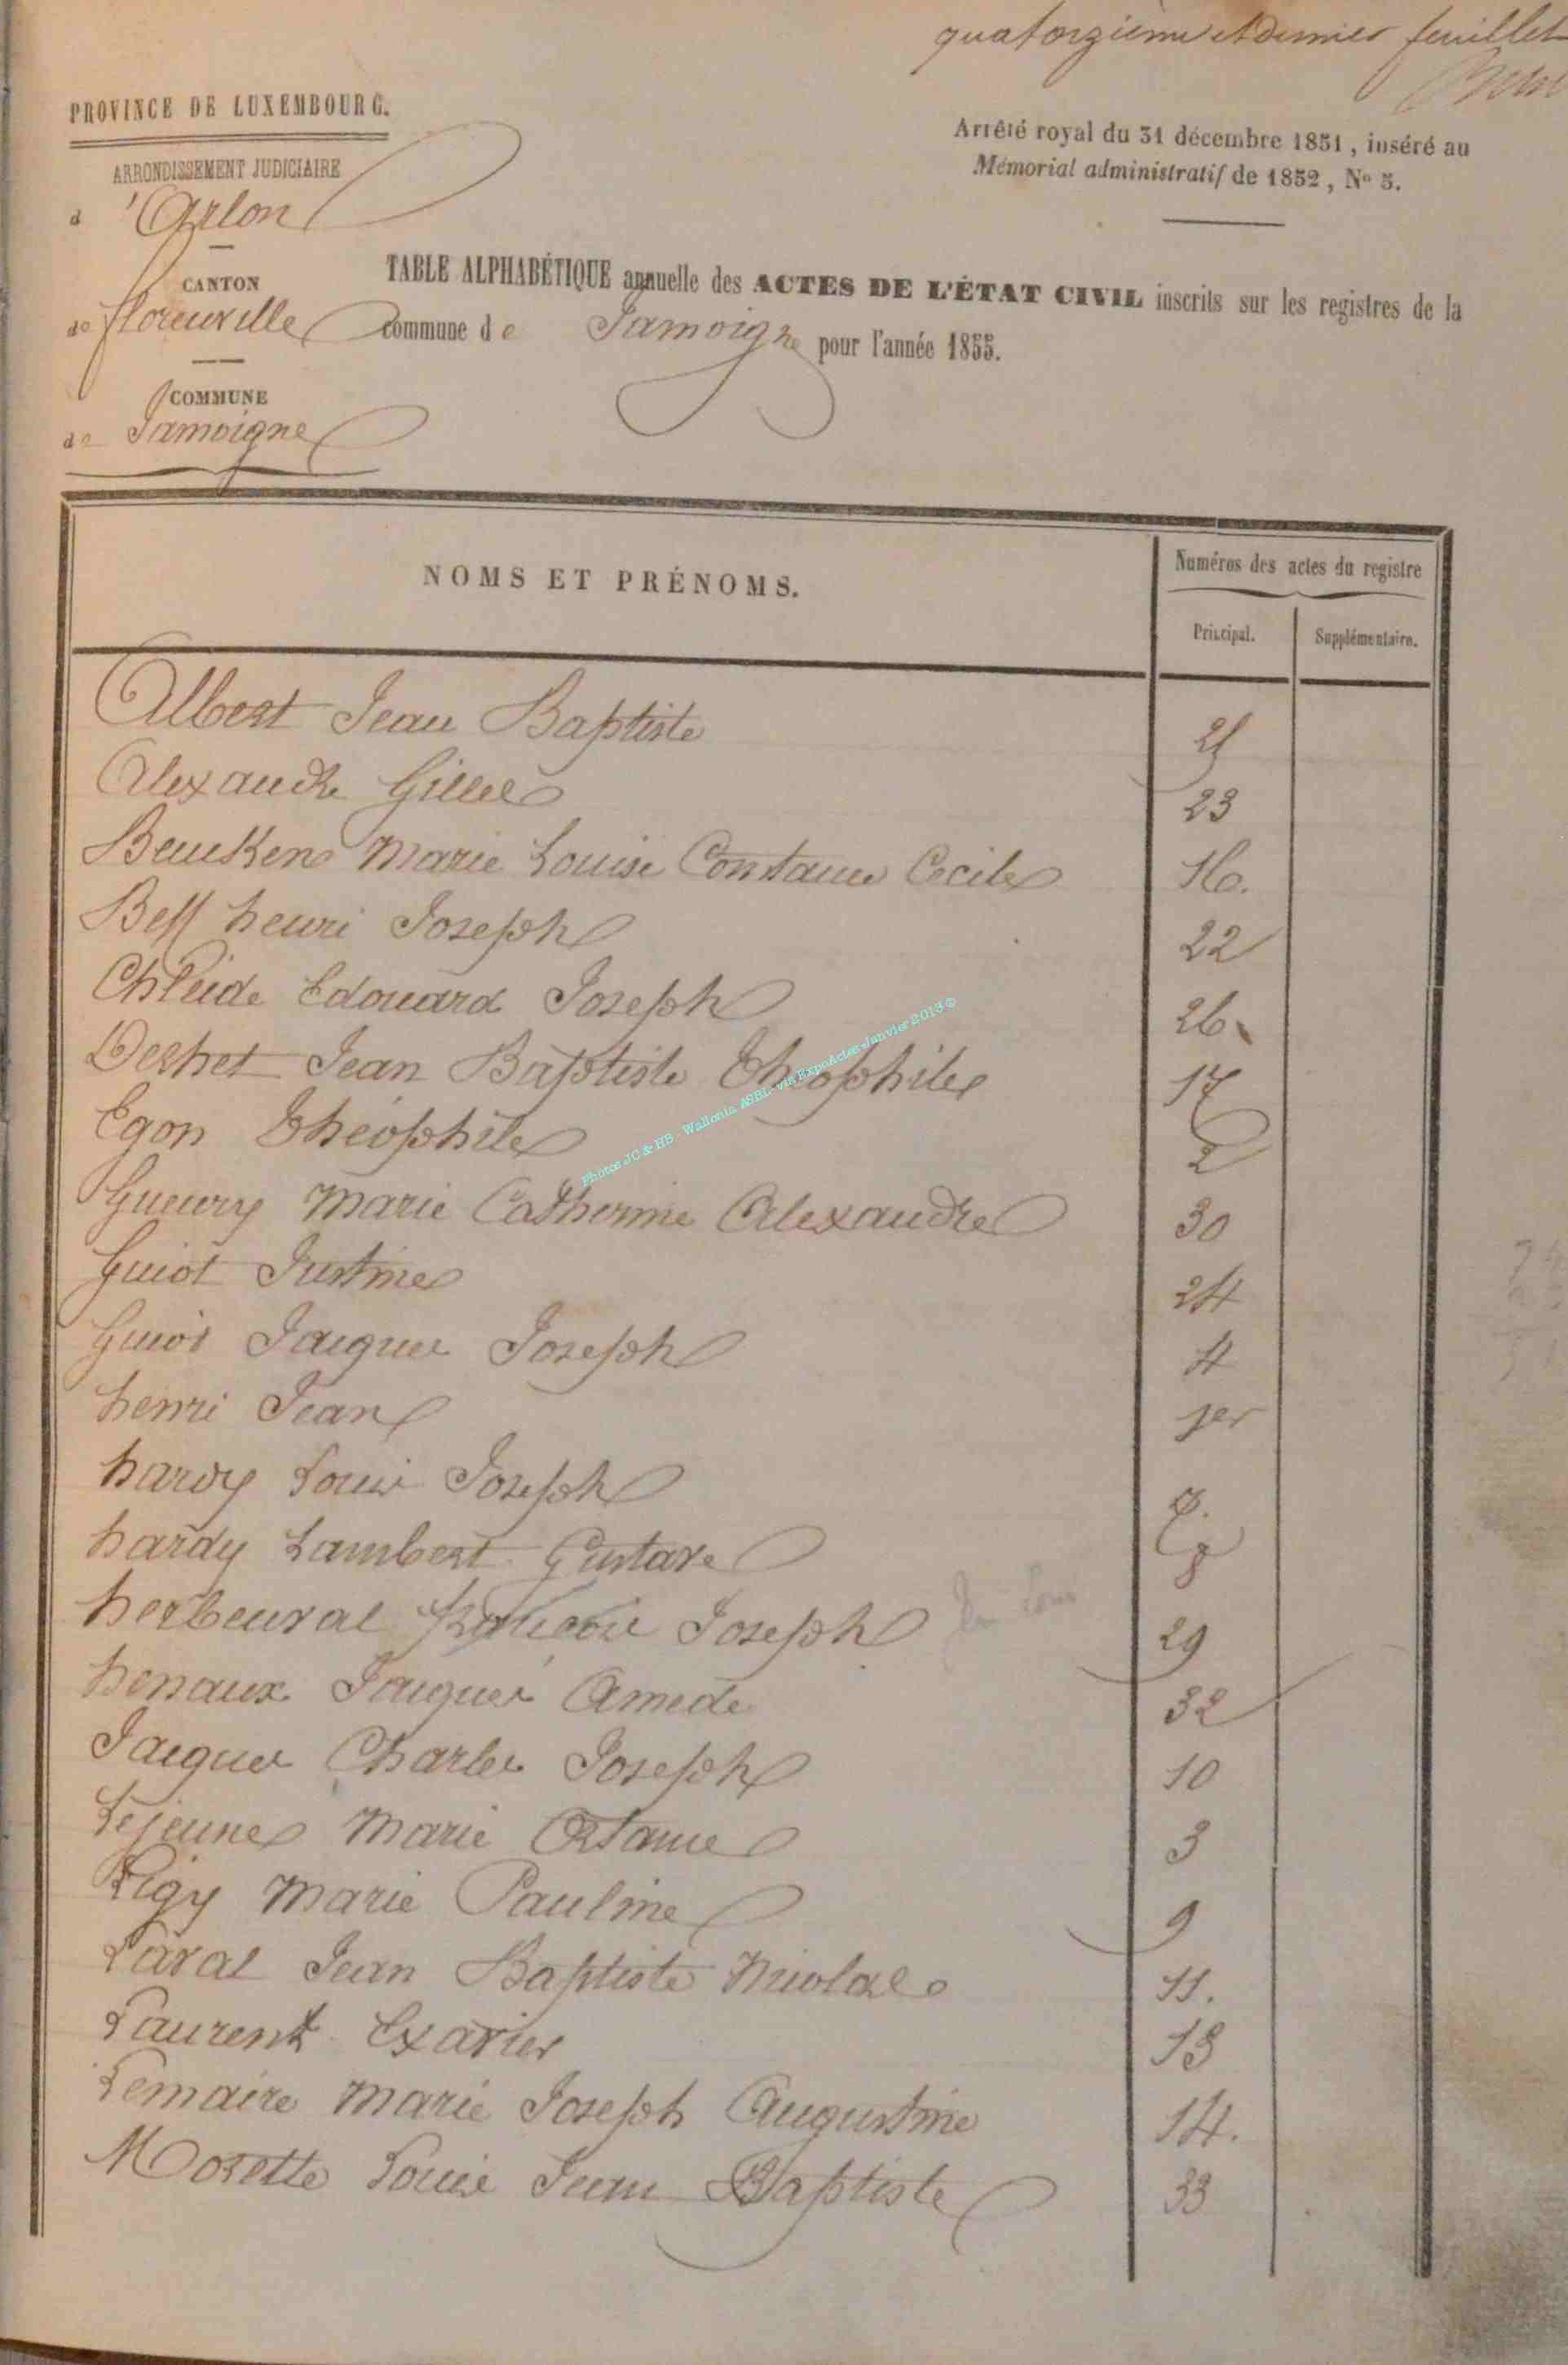 quatorzième et dernier feuillet
PROVINCE DE LUXEMBOURG.
ARRONDISSEMENT JUDICIAIRE
d'Arlon
CANTON
de florenville
COMMUNE
de Jamoigne
Arrêté royal du 31 décembre 1851, inséré au
Mémorial administratif de 1852, No 5.
TABLE ALPHABÉTIQUE annuelle des ACTES DE L'ÉTAT CIVIL inscrits sur les registres de la
commune de Jamoigne pour l'année 1855.
NOMS ET PRÉNOMS.
Numéros des actes du registre
Principal.
Supplémentaire.
Albert Jean Baptiste 21
Alexandre Gilles 23
Beuckens Marie Louise Constance Cecile 16.
henri Joseph 22
Edouard Joseph 26.
Dershet Jean Baptiste Théophile 17
Egon Théophile 2
Gueury Marie Catherine Alexandre 30
Guiot Justine 24
Guiot Jacques Joseph 4
henri Jean 1er
hardy Louis Joseph 7.
hardy Lambert Gustave 8
herbeuval françois Joseph 29
henaux Jacques Amede 32
Jacques Charles Joseph 10
Lejeune Marie Octavie 3
Ligy Marie Pauline 9
Laval Jean Baptiste Nicolas 11.
Laurent Exavier 13
Lemaire Marie Joseph Augustine 14.
Morette Louis Jean Baptiste 33
Photos JC & HS - Wallonia ASBL via ExpoActes Janvier 2013 ©